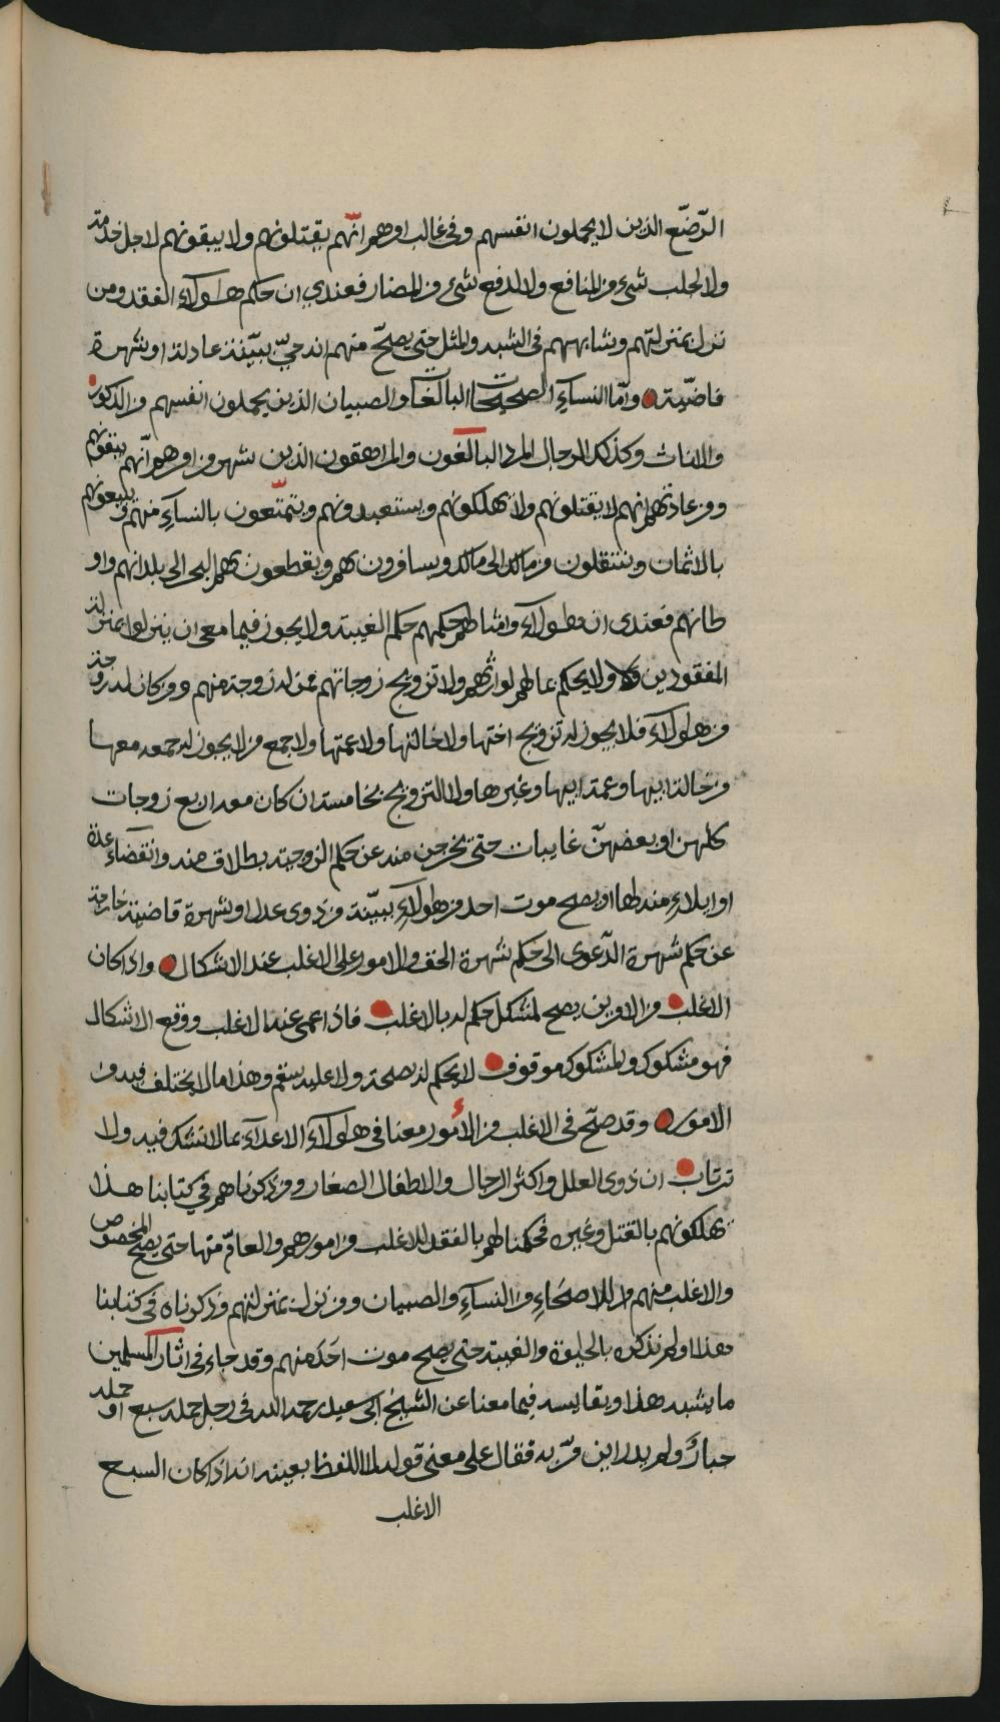 الرّضّع الذين لا يحملون انفسهم وفى غالب امرهم انّهم يقتلونهم ولا يبقونهم لاجل خدمة
ولا لجلب شىء من المنافع ولا لدفع شىء من المضار فعندي ان حكم هولاء الفقد ومن
نزل بمنزلتهم وشابههم فى الشبه والمثل حتى يصحّ منهم انه حيّ ببيّنة عادلة او شهرة
قاضيّة وامّا النسآء الصحيحات البالغات والصبيان الذين يحملون انفسهم من الذكور
والاناث وكذلك الرجال المرد البالغون والمراهقون الذين شهر من امرهم انّهم يبقونهم
ومن عادتهم انهم لا يقتلونهم ولا يهلكونهم ويستعبدونهم ويتمتّعون بالنسآء منهم ويبيعونهم
بالاثمان وينتقلون من مالك الى مالك ويسافرون بهم ويقطعون بهم البحر الى بلدانهم واو
طانهم فعندى ان هولآء وامثالهم حكمهم حكم الغيبة ولا يجوز فيما معى ان ينزلوا بمنزلة
المفقودين ولا يحكم بمالهم لوارثهم ولا تزويج زوجاتهم ممن له زوجة منهم ومن كان له زوجة
من هولآء فلا يجوز له تزويج اختها ولا خالتها ولا عمتها ولا جمع من لا يجوز له جمعه معها
من خالة ابيها وعمة ابيها وغيرها ولا التزويج بخامسة ان كان معه اربع زوجات
كلهن او بعضهنّ غايبات حتى تخرجن منه عن حكم الزوجية بطلاق منه وانقضاء عدة
او ايلاء منه لها او يصح موت احد من هولاء ببيّنة من ذوى عدل او شهرة قاضية خارجة
عن حكم شهرة الدّعوى الى حكم شهرة الحق والامور على الاغلب عند الاشكال واذا كان
الاغلب من الامرين يصح لمشكل حكم له بالاغلب فاذا عمى عند الاغلب ووقع الاشكال
فهو مشكوك والمشكوك موقوف لا يحكم له بصحة ولا عليه بسقم وهذا مما لا يختلف فيه من
الامور وقد صحّ فى الاغلب من الامور معنا فى هولاء الاعدآء مما لا تشك فيه ولا
ترتاب ان ذوى العلل واكثر الرجال والاطفال الصغار ومن ذكرناهم في كتابنا هذا
يهلكونهم بالقتل وغيره فحكمنا لهم بالفقد للاغلب من امورهم والعامّ منها حتى يصح المخصوص
والاغلب منهم للاصحاء من النسآء والصبيان ومن نزل بمنزلتهم من ذكرناه فى كتابنا
هذا او لم نذكره بالحيوة والغيبة حتى يصح موت احد منهم وقد جاء فى اثار المسلمين
ما يشبه هذا ويقايسه فيما معنا عن الشيخ ابى سعيد رحمه الله فى رجل حمله سبع او حمله
جبار ولم يدر اين مرّ به فقال على معنى قوله لا اللفظ بعينه انه اذا كان السبع
الاغلب